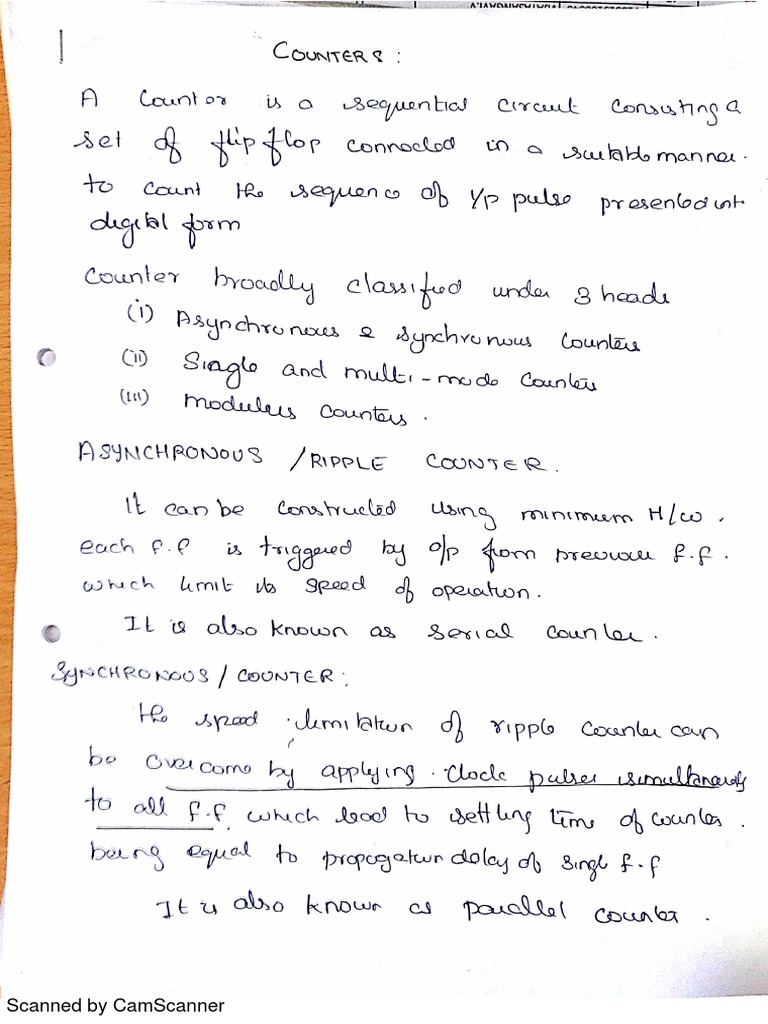 COUNTERS :
A Counter is a sequential circuit consisting a
set of flip flop connected in a suitable manner.
to count the sequence of I/p pulse presented in
digital form
Counter broadly classified under 3 heads
(i) Asynchronous & synchronous Counters
(ii) Single and multi-mode Counters
(iii) modulus Counters.
ASYNCHRONOUS /RIPPLE COUNTER.
It can be constructed using minimum H/w.
each f.f is triggered by o/p from previous f.f.
which limit its speed of operation.
It is also known as serial counter.
SYNCHRONOUS / COUNTER:
the speed limitation of ripple counter can
be overcome by applying clock pulses simultaneously
to all f.f. which lead to settling time of counter.
being equal to propogation delay of singl f.f
It is also known as parallel counter.
Scanned by CamScanner